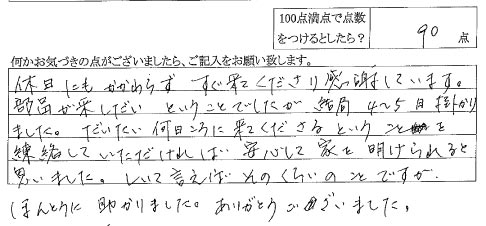 100点満点で点数
をつけるとしたら? 90 点
何かお気づきの点がございましたら、ご記入をお願い致します。
休日にもかかわらず すぐ来てくださり感謝しています。
部品が来しだい ということでしたが 結局 4〜5日 掛かり
ました。だいたい何日ころに来てくださるということを
連絡していただければ 安心して 家を 明けられると
思いました。しいて言えば そのくらいのことですが、
ほんとうに 助かりました。ありがとうございました。